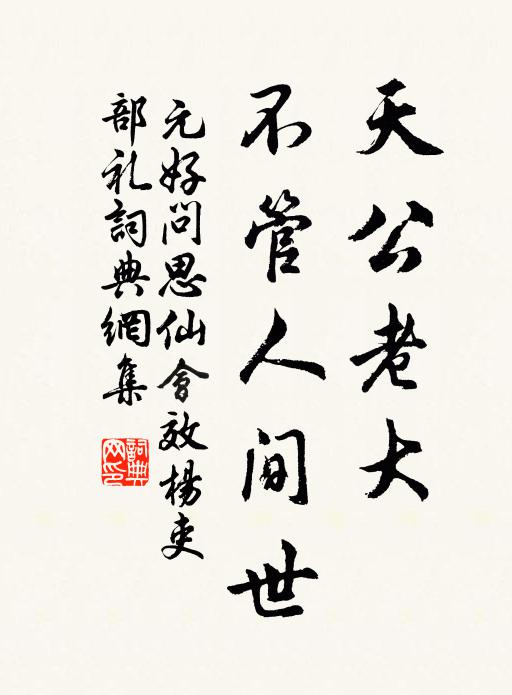 天公老大
不管人间世
元好问思仙會效楊吏
部礼詞典網集
詞典
网印